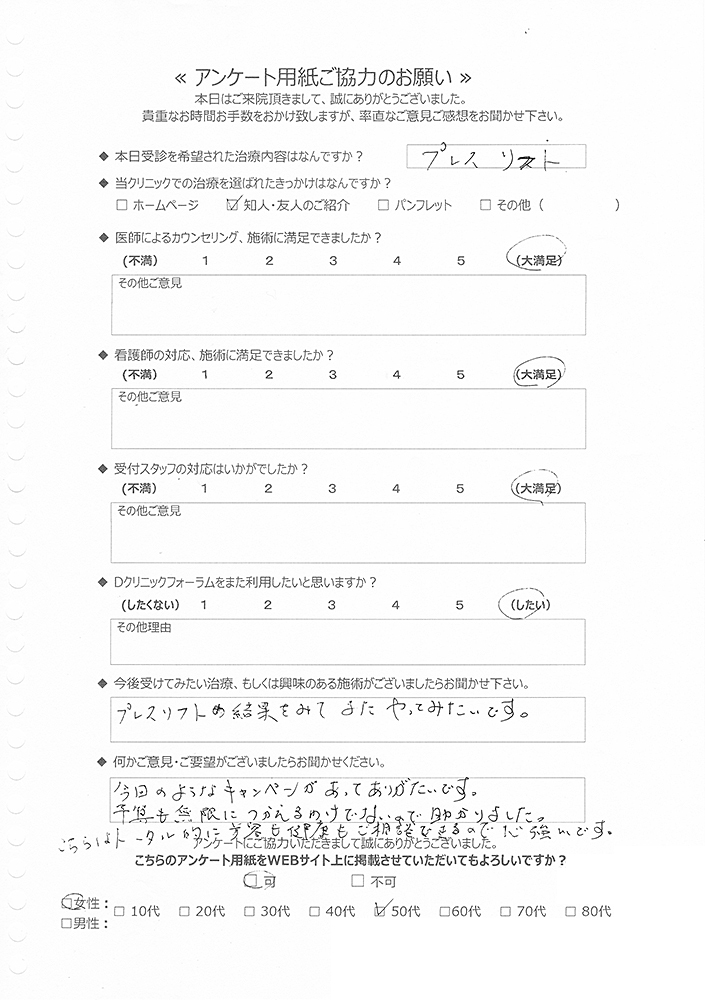 ≪ アンケート用紙ご協力のお願い ≫
本日はご来院頂きまして、誠にありがとうございました。
貴重なお時間お手数をおかけ致しますが、率直なご意見ご感想をお聞かせ下さい。
◆ 本日受診を希望された治療内容はなんですか？ プレスリフト
◆ 当クリニックでの治療を選ばれたきっかけはなんですか？
□ ホームページ ☑ 知人・友人のご紹介 □ パンフレット □ その他（ ）
◆ 医師によるカウンセリング、施術に満足できましたか？
(不満) 1 2 3 4 5 (大満足)
その他ご意見
◆ 看護師の対応、施術に満足できましたか？
(不満) 1 2 3 4 5 (大満足)
その他ご意見
◆ 受付スタッフの対応はいかがでしたか？
(不満) 1 2 3 4 5 (大満足)
その他ご意見
◆ Dクリニックフォーラムをまた利用したいと思いますか？
(したくない) 1 2 3 4 5 (したい)
その他理由
◆ 今後受けてみたい治療、もしくは興味のある施術がございましたらお聞かせ下さい。
プレスリフトの結果をみてまたやってみたいです。
◆ 何かご意見・ご要望がございましたらお聞かせください。
今回のようなキャンペーンがあってありがたいです。
予算も無限につかえるわけでないので助かりました。
こちらはトータル的に美容も健康もご相談できるので心強いです。
アンケートにご協力いただきまして誠にありがとうございました。
こちらのアンケート用紙をWEBサイト上に掲載させていただいてもよろしいですか？
□ 可 □ 不可
□女性： □ 10代 □ 20代 □ 30代 □ 40代 ☑ 50代 □60代 □ 70代 □ 80代
□男性：